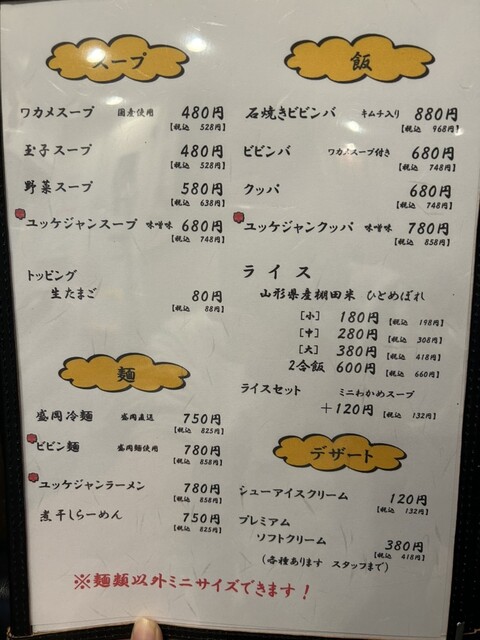 スープ
ワカメスープ 国産使用 480円
【税込 528円】
玉子スープ 480円
【税込 528円】
野菜スープ 580円
【税込 638円】
ユッケジャンスープ 味噌味 680円
【税込 748円】
トッピング
生たまご 80円
【税込 88円】
麺
盛岡冷麺 盛岡直送 750円
【税込 825円】
ビビン麺 盛岡麺使用 780円
【税込 858円】
ユッケジャンラーメン 780円
【税込 858円】
煮干しらーめん 750円
【税込 825円】
飯
石焼きビビンバ キムチ入り 880円
【税込 968円】
ビビンバ ワカメスープ付き 680円
【税込 748円】
クッパ 680円
【税込 748円】
ユッケジャンクッパ 味噌味 780円
【税込 858円】
ライス
山形県産棚田米 ひとめぼれ
[小] 180円 【税込 198円】
[中] 280円 【税込 308円】
[大] 380円 【税込 418円】
2合飯 600円 【税込 660円】
ライスセット ミニわかめスープ
+120円 【税込 132円】
デザート
シューアイスクリーム 120円
【税込 132円】
プレミアム
ソフトクリーム 380円
【税込 418円】
(各種あります スタッフまで)
※麺類以外ミニサイズできます!